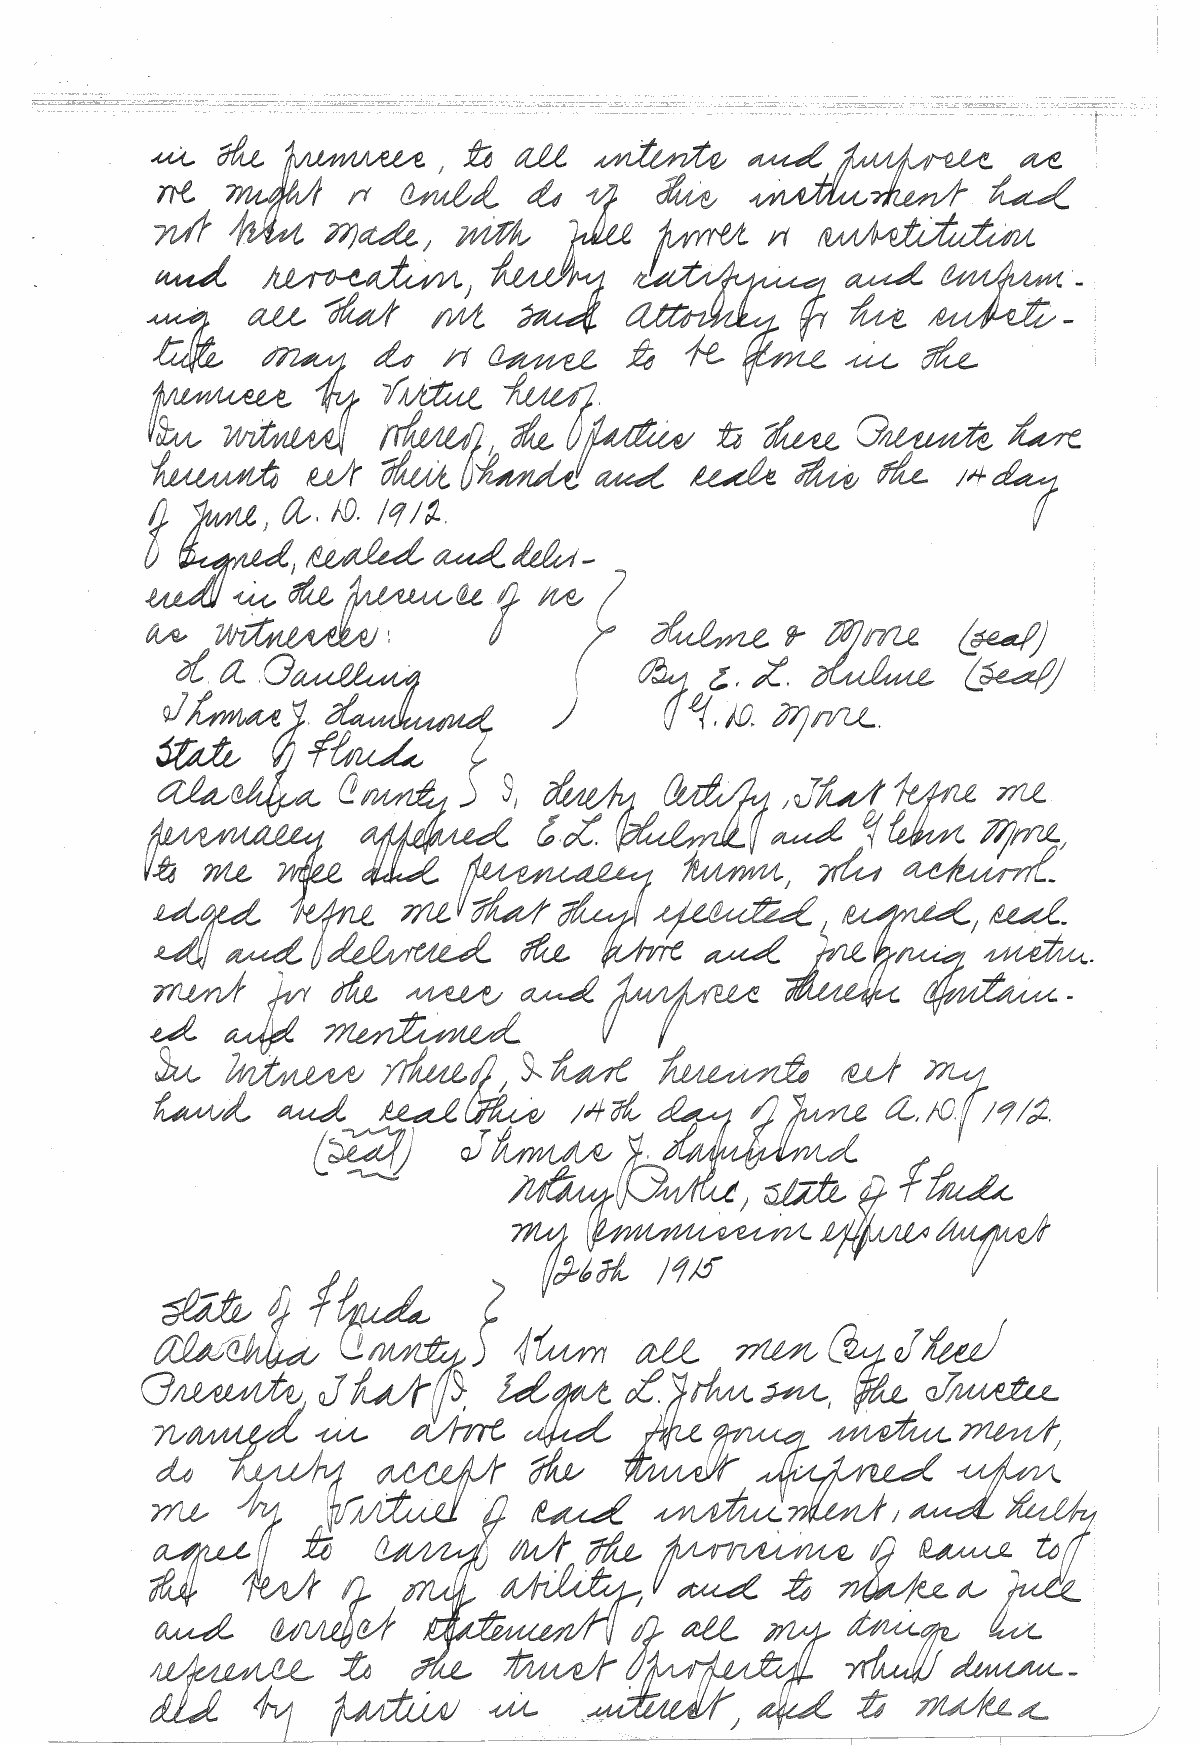 in the premises, to all intents and purposes as
we might or could do if this instrument had
not been made, with full power or substitution
and revocation, hereby ratifying and confirm-
ing all that our said Attorney or his substi-
tute may do or cause to be done in the
premises by Virtue hereof.
In Witness Whereof, the parties to these Presents have
hereunto set their hands and seals this the 14 day
of June, A.D. 1912.
Signed, sealed and deliv-
ered in the presence of us
as witnesses:
Hulme & Moore (seal)
H. A. Paulling
By E. L. Hulme (Seal)
Thomas J. Hammond
G. D. Moore.
State of Florida
Alachua County I, Hereby Certify, That before me
personally appeared E.L. Hulme and Glenn Moore,
to me well and personally known, who acknowl-
edged before me that they executed, signed, seal-
ed and delivered the above and foregoing instru-
ment for the uses and purposes therein contain-
ed and mentioned
In Witness Whereof, I have hereunto set my
hand and seal this 14th day of June A.D. 1912.
(Seal) Thomas J. Hammond
Notary Public, State of Florida
My commission expires August
26th 1915
State of Florida
Alachua County Know all men By These
Presents, That I, Edgar L. Johnson, the Trustee
named in above and foregoing instrument,
do hereby accept the trust imposed upon
me by Virtue of said instrument, and hereby
agree to carry out the provisions of same to
the best of my ability, and to make a full
and correct statement of all my doings in
reference to the trust property when deman-
ded by parties in interest, and to make a